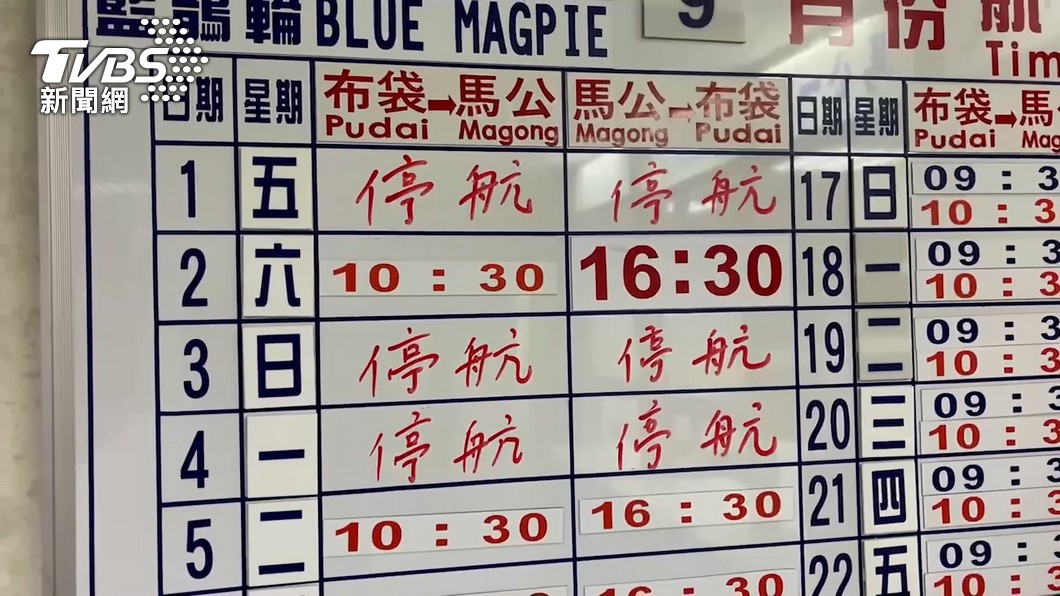 藍鵲輪 BLUE MAGPIE 9 月份航
Tim
TVBS
新聞網
日期 星期 布袋➡馬公 馬公➡布袋 日期 星期 布袋➡馬
Pudai Magong Magong Pudai Pudai Mag
1 五 停航 停航 17 日 09:3
10:3
2 六 10:30 16:30 18 一 09:3
10:3
3 日 停航 停航 19 二 09:3
10:3
4 一 停航 停航 20 三 09:3
10:3
5 二 10:30 16:30 21 四 09:3
10:3
16:30 22 五 09:3
10:3